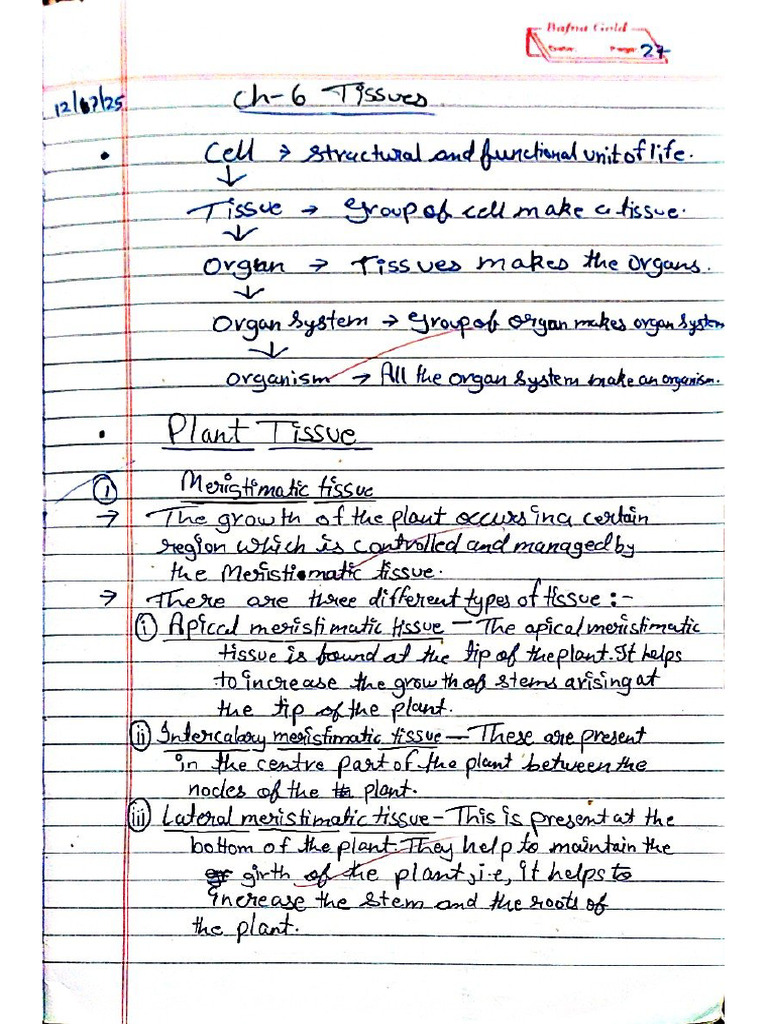 Bafna Gold
Date: Page: 27
12/07/25
Ch-6 Tissues
• Cell → structural and functional unit of life.
↓
Tissue → Group of cell make a tissue.
↓
Organ → Tissues makes the organs.
↓
Organ System → Group of organ makes organ system
↓
Organism → All the organ system make an organism.
• Plant Tissue
① Meristimatic tissue
→ The growth of the plant occurs in a certain
region which is controlled and managed by
the Meristimatic tissue.
→ There are three different types of tissue :-
(i) Apical meristimatic tissue – The apical meristimatic
tissue is found at the tip of the plant. It helps
to increase the growth of stems arising at
the tip of the plant.
(ii) Intercalary meristimatic tissue – These are present
in the centre part of the plant between the
nodes of the plant.
(iii) Lateral meristimatic tissue – This is present at the
bottom of the plant. They help to maintain the
girth of the plant, i.e, it helps to
increase the stem and the roots of
the plant.